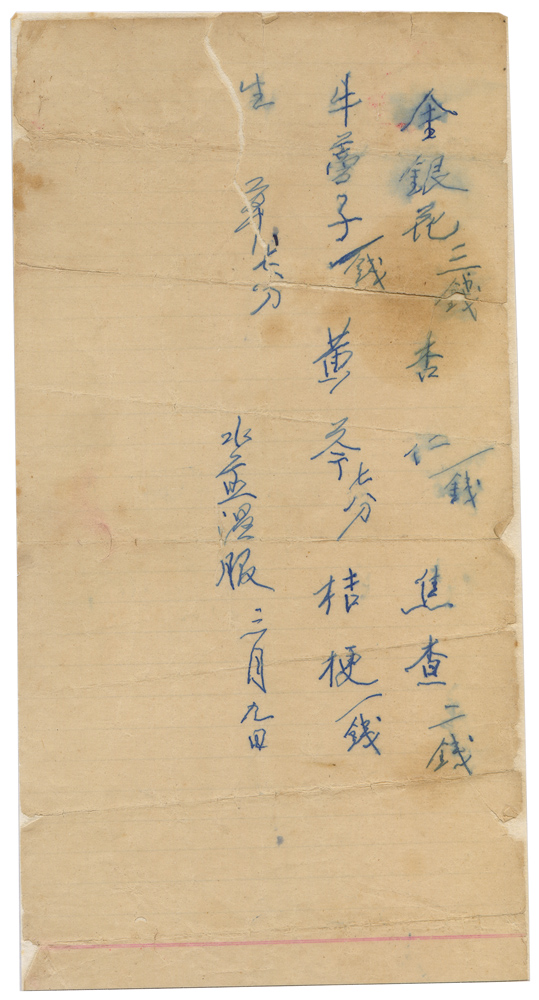 金銀花三錢 杏仁一錢 焦查二錢
牛蒡子一錢 黄芩七分 桔梗一錢
生草七分
水煎温服 三月九日